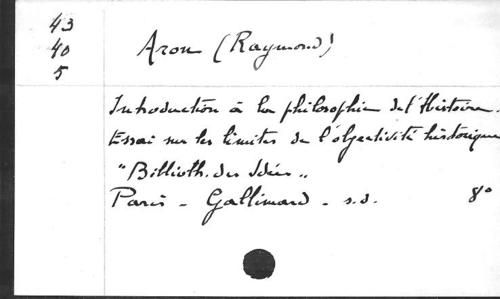 43
40
5
Aron (Raymond)
Introduction à la philosophie de l'Histoire.
Essai sur les limites de l'objectivité historique
"Biblioth. des Idées"
Paris - Gallimard - s.d. 8°